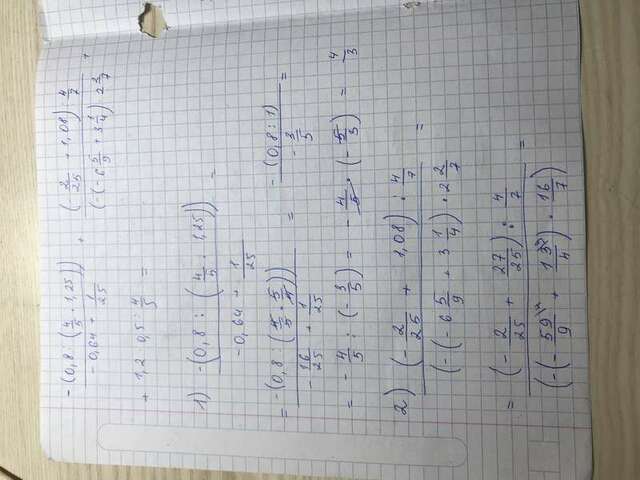 -(0,8 : (4/5 · 1,25)) / (-0,64 + 1/25) + ((2/25 + 1,08) : 4/7) / ((-(-6 5/9 + 3 1/4) · 2 2/7) +
+ 1,2 · 0,5 : 4/5 =
1) -(0,8 : (4/5 · 1,25)) / (-0,64 + 1/25) =
= -(0,8 : (4/5 · 5/4)) / (-16/25 + 1/25) = -(0,8 : 1) / (-3/5) =
= -4/5 : (-3/5) = -4/5 · (-5/3) = 4/3
2) (-2/25 + 1,08) : 4/7 / (-(-6 5/9 + 3 1/4) · 2 2/7 =
= (-2/25 + 27/25) : 4/7 / (-(-59/9 + 13/4) · 16/7) =